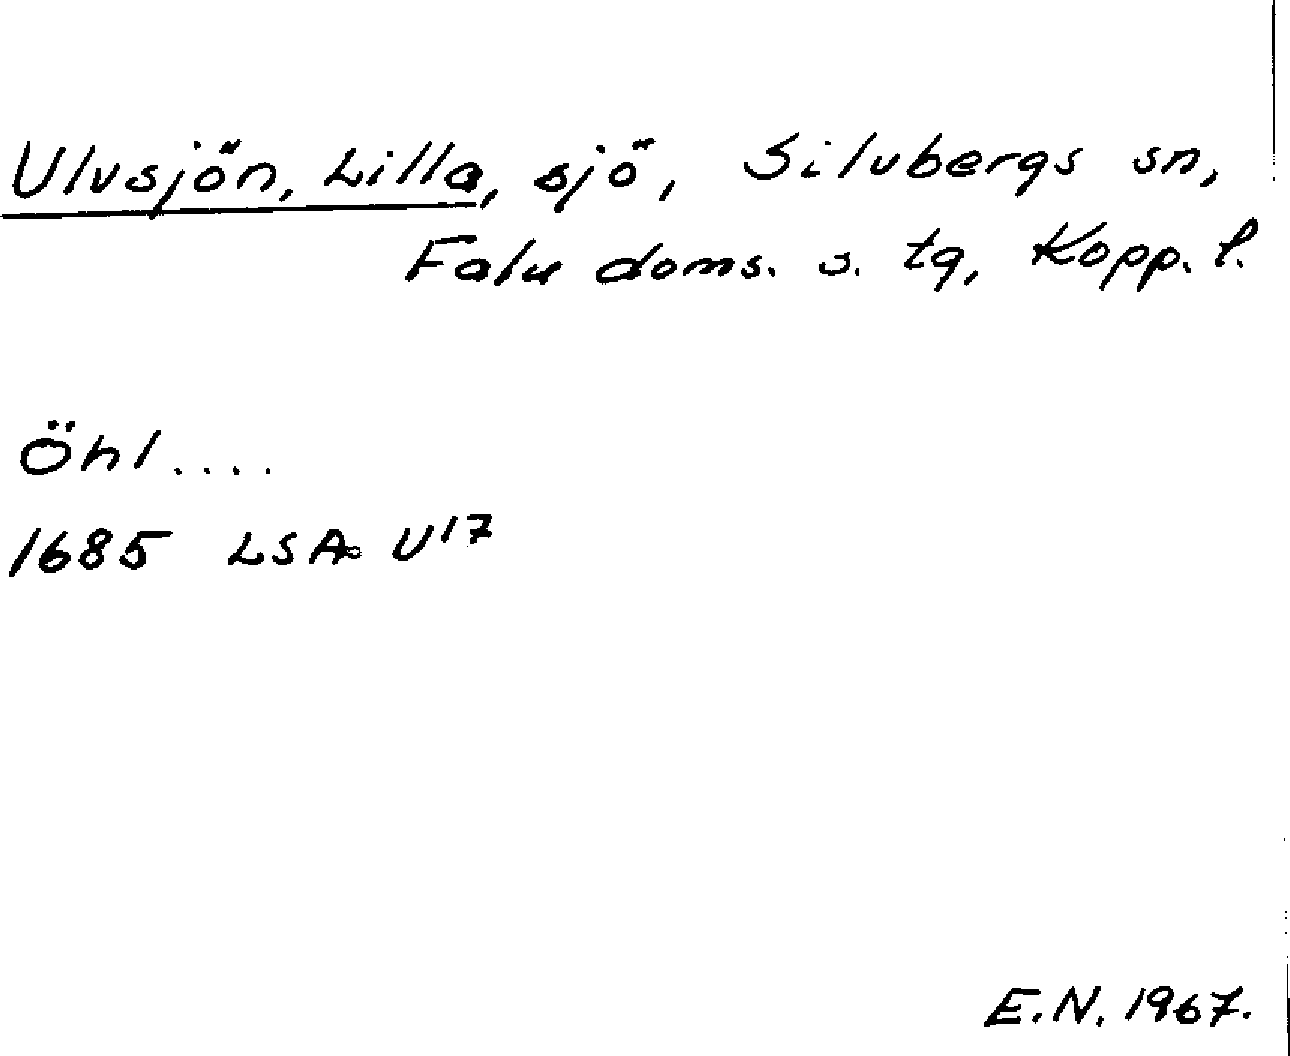 Ulvsjön, Lilla, sjö, Silvbergs sn,
Falu doms. s. tg, Kopp. l.
Öhl....
1685 LSA U17
E.N. 1967.